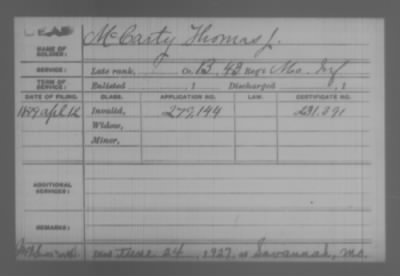 DEAD
NAME OF SOLDIER: McCarty Thomas J.
SERVICE: Late rank, Co. B, 43 Reg't Mo. Inf
TERM OF SERVICE: Enlisted , 1 Discharged , 1
DATE OF FILING. CLASS. APPLICATION NO. LAW. CERTIFICATE NO.
1879 Apl. 12 Invalid, 279,144 231,391
Widow,
Minor,
ADDITIONAL SERVICES:
REMARKS:
Died June 24, 1927, at Savannah, Mo.